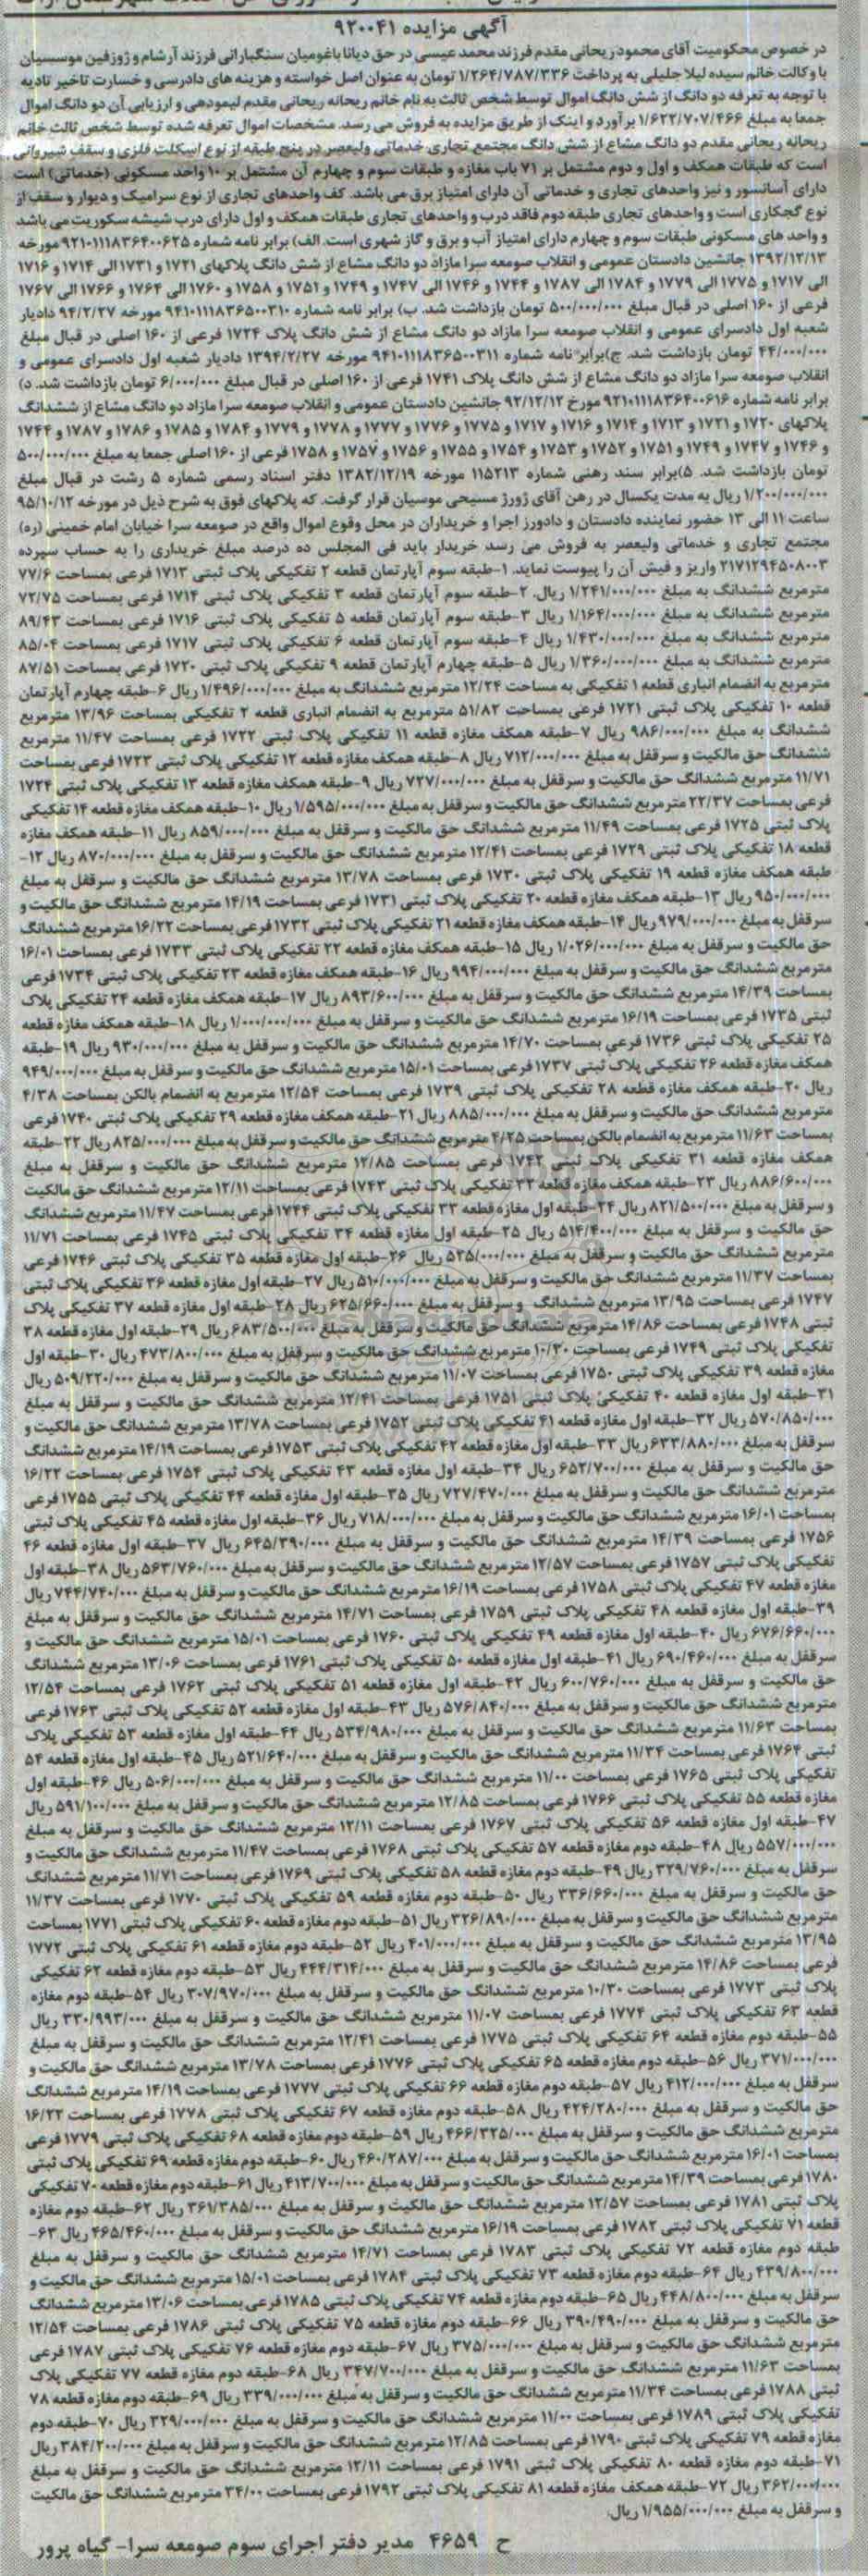 آگهی مزایده ۹۲۰۰۴۱
در خصوص محکومیت آقای محمود ریحانی مقدم فرزند محمد عیسی در حق دیانا باغومیان سنگبارانی فرزند آرشام و ژوزفین موسسیان
با وکالت خانم سیده لیلا جلیلی به پرداخت ۱/۲۶۴/۷۸۷/۳۳۶ تومان به عنوان اصل خواسته و هزینه های دادرسی و خسارت تاخیر تادیه
با توجه به تعرفه دو دانگ از شش دانگ اموال توسط شخص ثالث به نام خانم ریحانه ریحانی مقدم لیمودهی و ارزیابی آن دو دانگ اموال
جمعا به مبلغ ۱/۶۲۲/۷۰۷/۴۶۶ برآورد و اینک از طریق مزایده به فروش می رسد. مشخصات اموال تعرفه شده توسط شخص ثالث خانم
ریحانه ریحانی مقدم دو دانگ مشاع از شش دانگ مجتمع تجاری خدماتی ولیعصر در پنج طبقه از نوع اسکلت فلزی و سقف شیروانی
است که طبقات همکف و اول و دوم مشتمل بر ۷۱ باب مغازه و طبقات سوم و چهارم آن مشتمل بر ۱۰ واحد مسکونی (خدماتی) است
دارای آسانسور و نیز واحدهای تجاری و خدماتی آن دارای امتیاز برق می باشد. کف واحدهای تجاری از نوع سرامیک و دیوار و سقف از
نوع گچکاری است و واحدهای تجاری طبقه دوم فاقد درب و واحدهای تجاری طبقات همکف و اول دارای درب شیشه سکوریت می باشد
و واحد های مسکونی طبقات سوم و چهارم دارای امتیاز آب و برق و گاز شهری است. الف) برابر نامه شماره ۹۲۱۰۱۱۱۸۳۶۴۰۰۶۲۵ مورخه
۱۳۹۲/۱۲/۱۳ جانشین دادستان عمومی و انقلاب صومعه سرا مازاد دو دانگ مشاع از شش دانگ پلاکهای ۱۷۲۱ و ۱۷۳۱ الی ۱۷۱۴ و ۱۷۱۶
الی ۱۷۱۷ و ۱۷۷۵ الی ۱۷۷۹ و ۱۷۸۴ الی ۱۷۸۷ و ۱۷۴۴ و ۱۷۴۶ الی ۱۷۴۷ و ۱۷۴۹ و ۱۷۵۱ و ۱۷۵۸ و ۱۷۶۰ الی ۱۷۶۴ و ۱۷۶۶ الی ۱۷۶۷
فرعی از ۱۶۰ اصلی در قبال مبلغ ۵۰۰/۰۰۰/۰۰۰ تومان بازداشت شد. ب) برابر نامه شماره ۹۴۱۰۱۱۱۸۳۶۵۰۰۳۱۰ مورخه ۹۴/۲/۲۷ دادیار
شعبه اول دادسرای عمومی و انقلاب صومعه سرا مازاد دو دانگ مشاع از شش دانگ پلاک ۱۷۲۴ فرعی از ۱۶۰ اصلی در قبال مبلغ
۴۴/۰۰۰/۰۰۰ تومان بازداشت شد. ج)برابر نامه شماره ۹۴۱۰۱۱۱۸۳۶۵۰۰۳۱۱ مورخه ۱۳۹۴/۲/۲۷ دادیار شعبه اول دادسرای عمومی و
انقلاب صومعه سرا مازاد دو دانگ مشاع از شش دانگ پلاک ۱۷۴۱ فرعی از ۱۶۰ اصلی در قبال مبلغ ۶/۰۰۰/۰۰۰ تومان بازداشت شد. د)
برابر نامه شماره ۹۲۱۰۱۱۱۸۳۶۴۰۰۶۱۶ مورخ ۹۲/۱۲/۱۲ جانشین دادستان عمومی و انقلاب صومعه سرا مازاد دو دانگ مشاع از ششدانگ
پلاکهای ۱۷۲۰ و ۱۷۲۱ و ۱۷۱۳ و ۱۷۱۴ و ۱۷۱۶ و ۱۷۱۷ و ۱۷۷۵ و ۱۷۷۶ و ۱۷۷۷ و ۱۷۷۸ و ۱۷۷۹ و ۱۷۸۴ و ۱۷۸۵ و ۱۷۸۶ و ۱۷۸۷ و ۱۷۴۴
و ۱۷۴۶ و ۱۷۴۷ و ۱۷۴۹ و ۱۷۵۱ و ۱۷۵۲ و ۱۷۵۳ و ۱۷۵۴ و ۱۷۵۵ و ۱۷۵۶ و ۱۷۵۷ و ۱۷۵۸ فرعی از ۱۶۰ اصلی جمعا به مبلغ ۵۰۰/۰۰۰/۰۰۰
تومان بازداشت شد. ۵)برابر سند رهنی شماره ۱۱۵۲۱۳ مورخه ۱۳۸۲/۱۲/۱۹ دفتر اسناد رسمی شماره ۵ رشت در قبال مبلغ
۱/۲۰۰/۰۰۰/۰۰۰ ریال به مدت یکسال در رهن آقای ژورژ مسیحی موسیان قرار گرفت. که پلاکهای فوق به شرح ذیل در مورخه ۹۵/۱۰/۱۲
ساعت ۱۱ الی ۱۳ حضور نماینده دادستان و دادورز اجرا و خریداران در محل وقوع اموال واقع در صومعه سرا خیابان امام خمینی (ره)
مجتمع تجاری و خدماتی ولیعصر به فروش می رسد خریدار باید فی المجلس ده درصد مبلغ خریداری را به حساب سپرده
۲۱۷۱۲۹۴۵۰۸۰۰۳ واریز و فیش آن را پیوست نماید. ۱-طبقه سوم آپارتمان قطعه ۲ تفکیکی پلاک ثبتی ۱۷۱۳ فرعی بمساحت ۷۷/۶
مترمربع ششدانگ به مبلغ ۱/۲۴۱/۰۰۰/۰۰۰ ریال. ۲-طبقه سوم آپارتمان قطعه ۳ تفکیکی پلاک ثبتی ۱۷۱۴ فرعی بمساحت ۷۲/۷۵
مترمربع ششدانگ به مبلغ ۱/۱۶۴/۰۰۰/۰۰۰ ریال ۳-طبقه سوم آپارتمان قطعه ۵ تفکیکی پلاک ثبتی ۱۷۱۶ فرعی بمساحت ۸۹/۴۳
مترمربع ششدانگ به مبلغ ۱/۴۳۰/۰۰۰/۰۰۰ ریال ۴-طبقه سوم آپارتمان قطعه ۶ تفکیکی پلاک ثبتی ۱۷۱۷ فرعی بمساحت ۸۵/۰۴
مترمربع ششدانگ به مبلغ ۱/۳۶۰/۰۰۰/۰۰۰ ریال ۵-طبقه چهارم آپارتمان قطعه ۹ تفکیکی پلاک ثبتی ۱۷۲۰ فرعی بمساحت ۸۷/۵۱
مترمربع به انضمام انباری قطعه ۱ تفکیکی به مساحت ۱۲/۲۴ مترمربع ششدانگ به مبلغ ۱/۴۹۶/۰۰۰/۰۰۰ ریال ۶-طبقه چهارم آپارتمان
قطعه ۱۰ تفکیکی پلاک ثبتی ۱۷۲۱ فرعی بمساحت ۵۱/۸۲ مترمربع به انضمام انباری قطعه ۲ تفکیکی بمساحت ۱۳/۹۶ مترمربع
ششدانگ به مبلغ ۹۸۶/۰۰۰/۰۰۰ ریال ۷-طبقه همکف مغازه قطعه ۱۱ تفکیکی پلاک ثبتی ۱۷۲۲ فرعی بمساحت ۱۱/۴۷ مترمربع
ششدانگ حق مالکیت و سرقفل به مبلغ ۷۱۲/۰۰۰/۰۰۰ ریال ۸-طبقه همکف مغازه قطعه ۱۲ تفکیکی پلاک ثبتی ۱۷۲۳ فرعی بمساحت
۱۱/۷۱ مترمربع ششدانگ حق مالکیت و سرقفل به مبلغ ۷۲۷/۰۰۰/۰۰۰ ریال ۹-طبقه همکف مغازه قطعه ۱۳ تفکیکی پلاک ثبتی ۱۷۲۴
فرعی بمساحت ۲۲/۳۷ مترمربع ششدانگ حق مالکیت و سرقفل به مبلغ ۱/۵۹۵/۰۰۰/۰۰۰ ریال ۱۰-طبقه همکف مغازه قطعه ۱۴ تفکیکی
پلاک ثبتی ۱۷۲۵ فرعی بمساحت ۱۱/۴۹ مترمربع ششدانگ حق مالکیت و سرقفل به مبلغ ۸۵۹/۰۰۰/۰۰۰ ریال ۱۱-طبقه همکف مغازه
قطعه ۱۸ تفکیکی پلاک ثبتی ۱۷۲۹ فرعی بمساحت ۱۲/۴۱ مترمربع ششدانگ حق مالکیت و سرقفل به مبلغ ۸۷۰/۰۰۰/۰۰۰ ریال ۱۲-
طبقه همکف مغازه قطعه ۱۹ تفکیکی پلاک ثبتی ۱۷۳۰ فرعی بمساحت ۱۳/۷۸ مترمربع ششدانگ حق مالکیت و سرقفل به مبلغ
۹۵۰/۰۰۰/۰۰۰ ریال ۱۳-طبقه همکف مغازه قطعه ۲۰ تفکیکی پلاک ثبتی ۱۷۳۱ فرعی بمساحت ۱۴/۱۹ مترمربع ششدانگ حق مالکیت و
سرقفل به مبلغ ۹۷۹/۰۰۰/۰۰۰ ریال ۱۴-طبقه همکف مغازه قطعه ۲۱ تفکیکی پلاک ثبتی ۱۷۳۲ فرعی بمساحت ۱۶/۲۲ مترمربع ششدانگ
حق مالکیت و سرقفل به مبلغ ۱/۰۲۶/۰۰۰/۰۰۰ ریال ۱۵-طبقه همکف مغازه قطعه ۲۲ تفکیکی پلاک ثبتی ۱۷۳۳ فرعی بمساحت ۱۶/۰۱
مترمربع ششدانگ حق مالکیت و سرقفل به مبلغ ۹۹۴/۰۰۰/۰۰۰ ریال ۱۶-طبقه همکف مغازه قطعه ۲۳ تفکیکی پلاک ثبتی ۱۷۳۴ فرعی
بمساحت ۱۴/۳۹ مترمربع ششدانگ حق مالکیت و سرقفل به مبلغ ۸۹۳/۶۰۰/۰۰۰ ریال ۱۷-طبقه همکف مغازه قطعه ۲۴ تفکیکی پلاک
ثبتی ۱۷۳۵ فرعی بمساحت ۱۶/۱۹ مترمربع ششدانگ حق مالکیت و سرقفل به مبلغ ۱/۰۰۰/۰۰۰/۰۰۰ ریال ۱۸-طبقه همکف مغازه قطعه
۲۵ تفکیکی پلاک ثبتی ۱۷۳۶ فرعی بمساحت ۱۴/۷۰ مترمربع ششدانگ حق مالکیت و سرقفل به مبلغ ۹۳۰/۰۰۰/۰۰۰ ریال ۱۹-طبقه
همکف مغازه قطعه ۲۶ تفکیکی پلاک ثبتی ۱۷۳۷ فرعی بمساحت ۱۵/۰۱ مترمربع ششدانگ حق مالکیت و سرقفل به مبلغ ۹۴۹/۰۰۰/۰۰۰
ریال ۲۰-طبقه همکف مغازه قطعه ۲۸ تفکیکی پلاک ثبتی ۱۷۳۹ فرعی بمساحت ۱۲/۵۴ مترمربع به انضمام بالکن بمساحت ۴/۳۸
مترمربع ششدانگ حق مالکیت و سرقفل به مبلغ ۸۸۵/۰۰۰/۰۰۰ ریال ۲۱-طبقه همکف مغازه قطعه ۲۹ تفکیکی پلاک ثبتی ۱۷۴۰ فرعی
بمساحت ۱۱/۶۳ مترمربع به انضمام بالکن بمساحت ۴/۲۵ مترمربع ششدانگ حق مالکیت و سرقفل به مبلغ ۸۲۵/۰۰۰/۰۰۰ ریال ۲۲-طبقه
همکف مغازه قطعه ۳۱ تفکیکی پلاک ثبتی ۱۷۴۲ فرعی بمساحت ۱۲/۸۵ مترمربع ششدانگ حق مالکیت و سرقفل به مبلغ
۸۸۶/۶۰۰/۰۰۰ ریال ۲۳-طبقه همکف مغازه قطعه ۳۲ تفکیکی پلاک ثبتی ۱۷۴۳ فرعی بمساحت ۱۲/۱۱ مترمربع ششدانگ حق مالکیت
و سرقفل به مبلغ ۸۲۱/۵۰۰/۰۰۰ ریال ۲۴-طبقه اول مغازه قطعه ۳۳ تفکیکی پلاک ثبتی ۱۷۴۴ فرعی بمساحت ۱۱/۴۷ مترمربع ششدانگ
حق مالکیت و سرقفل به مبلغ ۵۱۴/۴۰۰/۰۰۰ ریال ۲۵-طبقه اول مغازه قطعه ۳۴ تفکیکی پلاک ثبتی ۱۷۴۵ فرعی بمساحت ۱۱/۷۱
مترمربع ششدانگ حق مالکیت و سرقفل به مبلغ ۵۲۵/۰۰۰/۰۰۰ ریال ۲۶-طبقه اول مغازه قطعه ۳۵ تفکیکی پلاک ثبتی ۱۷۴۶ فرعی
بمساحت ۱۱/۳۷ مترمربع ششدانگ حق مالکیت و سرقفل به مبلغ ۵۱۰/۰۰۰/۰۰۰ ریال ۲۷-طبقه اول مغازه قطعه ۳۶ تفکیکی پلاک ثبتی
۱۷۴۷ فرعی بمساحت ۱۳/۹۵ مترمربع ششدانگ و سرقفل به مبلغ ۶۲۵/۶۶۰/۰۰۰ ریال ۲۸-طبقه اول مغازه قطعه ۳۷ تفکیکی پلاک
ثبتی ۱۷۴۸ فرعی بمساحت ۱۴/۸۶ مترمربع ششدانگ حق مالکیت و سرقفل به مبلغ ۶۸۳/۵۰۰/۰۰۰ ریال ۲۹-طبقه اول مغازه قطعه ۳۸
تفکیکی پلاک ثبتی ۱۷۴۹ فرعی بمساحت ۱۰/۳۰ مترمربع ششدانگ حق مالکیت و سرقفل به مبلغ ۴۷۳/۸۰۰/۰۰۰ ریال ۳۰-طبقه اول
مغازه قطعه ۳۹ تفکیکی پلاک ثبتی ۱۷۵۰ فرعی بمساحت ۱۱/۰۷ مترمربع ششدانگ حق مالکیت و سرقفل به مبلغ ۵۰۹/۲۲۰/۰۰۰ ریال
۳۱-طبقه اول مغازه قطعه ۴۰ تفکیکی پلاک ثبتی ۱۷۵۱ فرعی بمساحت ۱۲/۴۱ مترمربع ششدانگ حق مالکیت و سرقفل به مبلغ
۵۷۰/۸۵۰/۰۰۰ ریال ۳۲-طبقه اول مغازه قطعه ۴۱ تفکیکی پلاک ثبتی ۱۷۵۲ فرعی بمساحت ۱۳/۷۸ مترمربع ششدانگ حق مالکیت و
سرقفل به مبلغ ۶۳۳/۸۸۰/۰۰۰ ریال ۳۳-طبقه اول مغازه قطعه ۴۲ تفکیکی پلاک ثبتی ۱۷۵۳ فرعی بمساحت ۱۴/۱۹ مترمربع ششدانگ
حق مالکیت و سرقفل به مبلغ ۶۵۲/۷۰۰/۰۰۰ ریال ۳۴-طبقه اول مغازه قطعه ۴۳ تفکیکی پلاک ثبتی ۱۷۵۴ فرعی بمساحت ۱۶/۲۲
مترمربع ششدانگ حق مالکیت و سرقفل به مبلغ ۷۲۷/۴۷۰/۰۰۰ ریال ۳۵-طبقه اول مغازه قطعه ۴۴ تفکیکی پلاک ثبتی ۱۷۵۵ فرعی
بمساحت ۱۶/۰۱ مترمربع ششدانگ حق مالکیت و سرقفل به مبلغ ۷۱۸/۰۰۰/۰۰۰ ریال ۳۶-طبقه اول مغازه قطعه ۴۵ تفکیکی پلاک ثبتی
۱۷۵۶ فرعی بمساحت ۱۴/۳۹ مترمربع ششدانگ حق مالکیت و سرقفل به مبلغ ۶۴۵/۳۹۰/۰۰۰ ریال ۳۷-طبقه اول مغازه قطعه ۴۶
تفکیکی پلاک ثبتی ۱۷۵۷ فرعی بمساحت ۱۲/۵۷ مترمربع ششدانگ حق مالکیت و سرقفل به مبلغ ۵۶۳/۷۶۰/۰۰۰ ریال ۳۸-طبقه اول
مغازه قطعه ۴۷ تفکیکی پلاک ثبتی ۱۷۵۸ فرعی بمساحت ۱۶/۱۹ مترمربع ششدانگ حق مالکیت و سرقفل به مبلغ ۷۴۴/۷۴۰/۰۰۰ ریال
۳۹-طبقه اول مغازه قطعه ۴۸ تفکیکی پلاک ثبتی ۱۷۵۹ فرعی بمساحت ۱۴/۷۱ مترمربع ششدانگ حق مالکیت و سرقفل به مبلغ
۶۷۶/۶۶۰/۰۰۰ ریال ۴۰-طبقه اول مغازه قطعه ۴۹ تفکیکی پلاک ثبتی ۱۷۶۰ فرعی بمساحت ۱۵/۰۱ مترمربع ششدانگ حق مالکیت و
سرقفل به مبلغ ۶۹۰/۴۶۰/۰۰۰ ریال ۴۱-طبقه اول مغازه قطعه ۵۰ تفکیکی پلاک ثبتی ۱۷۶۱ فرعی بمساحت ۱۳/۰۶ مترمربع ششدانگ
حق مالکیت و سرقفل به مبلغ ۶۰۰/۷۶۰/۰۰۰ ریال ۴۲-طبقه اول مغازه قطعه ۵۱ تفکیکی پلاک ثبتی ۱۷۶۲ فرعی بمساحت ۱۲/۵۴
مترمربع ششدانگ حق مالکیت و سرقفل به مبلغ ۵۷۶/۸۴۰/۰۰۰ ریال ۴۳-طبقه اول مغازه قطعه ۵۲ تفکیکی پلاک ثبتی ۱۷۶۳ فرعی
بمساحت ۱۱/۶۳ مترمربع ششدانگ حق مالکیت و سرقفل به مبلغ ۵۳۴/۹۸۰/۰۰۰ ریال ۴۴-طبقه اول مغازه قطعه ۵۳ تفکیکی پلاک
ثبتی ۱۷۶۴ فرعی بمساحت ۱۱/۳۴ مترمربع ششدانگ حق مالکیت و سرقفل به مبلغ ۵۲۱/۶۴۰/۰۰۰ ریال ۴۵-طبقه اول مغازه قطعه ۵۴
تفکیکی پلاک ثبتی ۱۷۶۵ فرعی بمساحت ۱۱/۰۰ مترمربع ششدانگ حق مالکیت و سرقفل به مبلغ ۵۰۶/۰۰۰/۰۰۰ ریال ۴۶-طبقه اول
مغازه قطعه ۵۵ تفکیکی پلاک ثبتی ۱۷۶۶ فرعی بمساحت ۱۲/۸۵ مترمربع ششدانگ حق مالکیت و سرقفل به مبلغ ۵۹۱/۱۰۰/۰۰۰ ریال
۴۷-طبقه اول مغازه قطعه ۵۶ تفکیکی پلاک ثبتی ۱۷۶۷ فرعی بمساحت ۱۲/۱۱ مترمربع ششدانگ حق مالکیت و سرقفل به مبلغ
۵۵۷/۰۰۰/۰۰۰ ریال ۴۸-طبقه دوم مغازه قطعه ۵۷ تفکیکی پلاک ثبتی ۱۷۶۸ فرعی بمساحت ۱۱/۴۷ مترمربع ششدانگ حق مالکیت و
سرقفل به مبلغ ۳۲۹/۷۶۰/۰۰۰ ریال ۴۹-طبقه دوم مغازه قطعه ۵۸ تفکیکی پلاک ثبتی ۱۷۶۹ فرعی بمساحت ۱۱/۷۱ مترمربع ششدانگ
حق مالکیت و سرقفل به مبلغ ۳۳۶/۶۶۰/۰۰۰ ریال ۵۰-طبقه دوم مغازه قطعه ۵۹ تفکیکی پلاک ثبتی ۱۷۷۰ فرعی بمساحت ۱۱/۳۷
مترمربع ششدانگ حق مالکیت و سرقفل به مبلغ ۳۲۶/۸۹۰/۰۰۰ ریال ۵۱-طبقه دوم مغازه قطعه ۶۰ تفکیکی پلاک ثبتی ۱۷۷۱ بمساحت
۱۳/۹۵ مترمربع ششدانگ حق مالکیت و سرقفل به مبلغ ۴۰۱/۰۰۰/۰۰۰ ریال ۵۲-طبقه دوم مغازه قطعه ۶۱ تفکیکی پلاک ثبتی ۱۷۷۲
فرعی بمساحت ۱۴/۸۶ مترمربع ششدانگ حق مالکیت و سرقفل به مبلغ ۴۴۴/۳۱۴/۰۰۰ ریال ۵۳-طبقه دوم مغازه قطعه ۶۲ تفکیکی
پلاک ثبتی ۱۷۷۳ فرعی بمساحت ۱۰/۳۰ مترمربع ششدانگ حق مالکیت و سرقفل به مبلغ ۳۰۷/۹۷۰/۰۰۰ ریال ۵۴-طبقه دوم مغازه
قطعه ۶۳ تفکیکی پلاک ثبتی ۱۷۷۴ فرعی بمساحت ۱۱/۰۷ مترمربع ششدانگ حق مالکیت و سرقفل به مبلغ ۳۳۰/۹۹۳/۰۰۰ ریال
۵۵-طبقه دوم مغازه قطعه ۶۴ تفکیکی پلاک ثبتی ۱۷۷۵ فرعی بمساحت ۱۲/۴۱ مترمربع ششدانگ حق مالکیت و سرقفل به مبلغ
۳۷۱/۰۰۰/۰۰۰ ریال ۵۶-طبقه دوم مغازه قطعه ۶۵ تفکیکی پلاک ثبتی ۱۷۷۶ فرعی بمساحت ۱۳/۷۸ مترمربع ششدانگ حق مالکیت و
سرقفل به مبلغ ۴۱۲/۰۰۰/۰۰۰ ریال ۵۷-طبقه دوم مغازه قطعه ۶۶ تفکیکی پلاک ثبتی ۱۷۷۷ فرعی بمساحت ۱۴/۱۹ مترمربع ششدانگ
حق مالکیت و سرقفل به مبلغ ۴۲۴/۲۸۰/۰۰۰ ریال ۵۸-طبقه دوم مغازه قطعه ۶۷ تفکیکی پلاک ثبتی ۱۷۷۸ فرعی بمساحت ۱۶/۲۲
مترمربع ششدانگ حق مالکیت و سرقفل به مبلغ ۴۶۶/۳۲۵/۰۰۰ ریال ۵۹-طبقه دوم مغازه قطعه ۶۸ تفکیکی پلاک ثبتی ۱۷۷۹ فرعی
بمساحت ۱۶/۰۱ مترمربع ششدانگ حق مالکیت و سرقفل به مبلغ ۴۶۰/۲۸۷/۰۰۰ ریال ۶۰-طبقه دوم مغازه قطعه ۶۹ تفکیکی پلاک ثبتی
۱۷۸۰ فرعی بمساحت ۱۴/۳۹ مترمربع ششدانگ حق مالکیت و سرقفل به مبلغ ۴۱۳/۷۰۰/۰۰۰ ریال ۶۱-طبقه دوم مغازه قطعه ۷۰ تفکیکی
پلاک ثبتی ۱۷۸۱ فرعی بمساحت ۱۲/۵۷ مترمربع ششدانگ حق مالکیت و سرقفل به مبلغ ۳۶۱/۳۸۵/۰۰۰ ریال ۶۲-طبقه دوم مغازه
قطعه ۷۱ تفکیکی پلاک ثبتی ۱۷۸۲ فرعی بمساحت ۱۶/۱۹ مترمربع ششدانگ حق مالکیت و سرقفل به مبلغ ۴۶۵/۴۶۰/۰۰۰ ریال ۶۳-
طبقه دوم مغازه قطعه ۷۲ تفکیکی پلاک ثبتی ۱۷۸۳ فرعی بمساحت ۱۴/۷۱ مترمربع ششدانگ حق مالکیت و سرقفل به مبلغ
۴۳۹/۸۰۰/۰۰۰ ریال ۶۴-طبقه دوم مغازه قطعه ۷۳ تفکیکی پلاک ثبتی ۱۷۸۴ فرعی بمساحت ۱۵/۰۱ مترمربع ششدانگ حق مالکیت و
سرقفل به مبلغ ۴۴۸/۸۰۰/۰۰۰ ریال ۶۵-طبقه دوم مغازه قطعه ۷۴ تفکیکی پلاک ثبتی ۱۷۸۵ فرعی بمساحت ۱۳/۰۶ مترمربع ششدانگ
حق مالکیت و سرقفل به مبلغ ۳۹۰/۴۹۰/۰۰۰ ریال ۶۶-طبقه دوم مغازه قطعه ۷۵ تفکیکی پلاک ثبتی ۱۷۸۶ فرعی بمساحت ۱۲/۵۴
مترمربع ششدانگ حق مالکیت و سرقفل به مبلغ ۳۷۵/۰۰۰/۰۰۰ ریال ۶۷-طبقه دوم مغازه قطعه ۷۶ تفکیکی پلاک ثبتی ۱۷۸۷ فرعی
بمساحت ۱۱/۶۳ مترمربع ششدانگ حق مالکیت و سرقفل به مبلغ ۳۴۷/۷۰۰/۰۰۰ ریال ۶۸-طبقه دوم مغازه قطعه ۷۷ تفکیکی پلاک
ثبتی ۱۷۸۸ فرعی بمساحت ۱۱/۳۴ مترمربع ششدانگ حق مالکیت و سرقفل به مبلغ ۳۳۹/۰۰۰/۰۰۰ ریال ۶۹-طبقه دوم مغازه قطعه ۷۸
تفکیکی پلاک ثبتی ۱۷۸۹ فرعی بمساحت ۱۱/۰۰ مترمربع ششدانگ حق مالکیت و سرقفل به مبلغ ۳۲۹/۰۰۰/۰۰۰ ریال ۷۰-طبقه دوم
مغازه قطعه ۷۹ تفکیکی پلاک ثبتی ۱۷۹۰ فرعی بمساحت ۱۲/۸۵ مترمربع ششدانگ حق مالکیت و سرقفل به مبلغ ۳۸۴/۲۰۰/۰۰۰ ریال
۷۱-طبقه دوم مغازه قطعه ۸۰ تفکیکی پلاک ثبتی ۱۷۹۱ فرعی بمساحت ۱۲/۱۱ مترمربع ششدانگ حق مالکیت و سرقفل به مبلغ
۳۶۲/۰۰۰/۰۰۰ ریال ۷۲-طبقه همکف مغازه قطعه ۸۱ تفکیکی پلاک ثبتی ۱۷۹۲ فرعی بمساحت ۳۴/۰۰ مترمربع ششدانگ حق مالکیت
و سرقفل به مبلغ ۱/۹۵۵/۰۰۰/۰۰۰ ریال.
ح ۴۶۵۹ مدیر دفتر اجرای سوم صومعه سرا- گیاه پرور